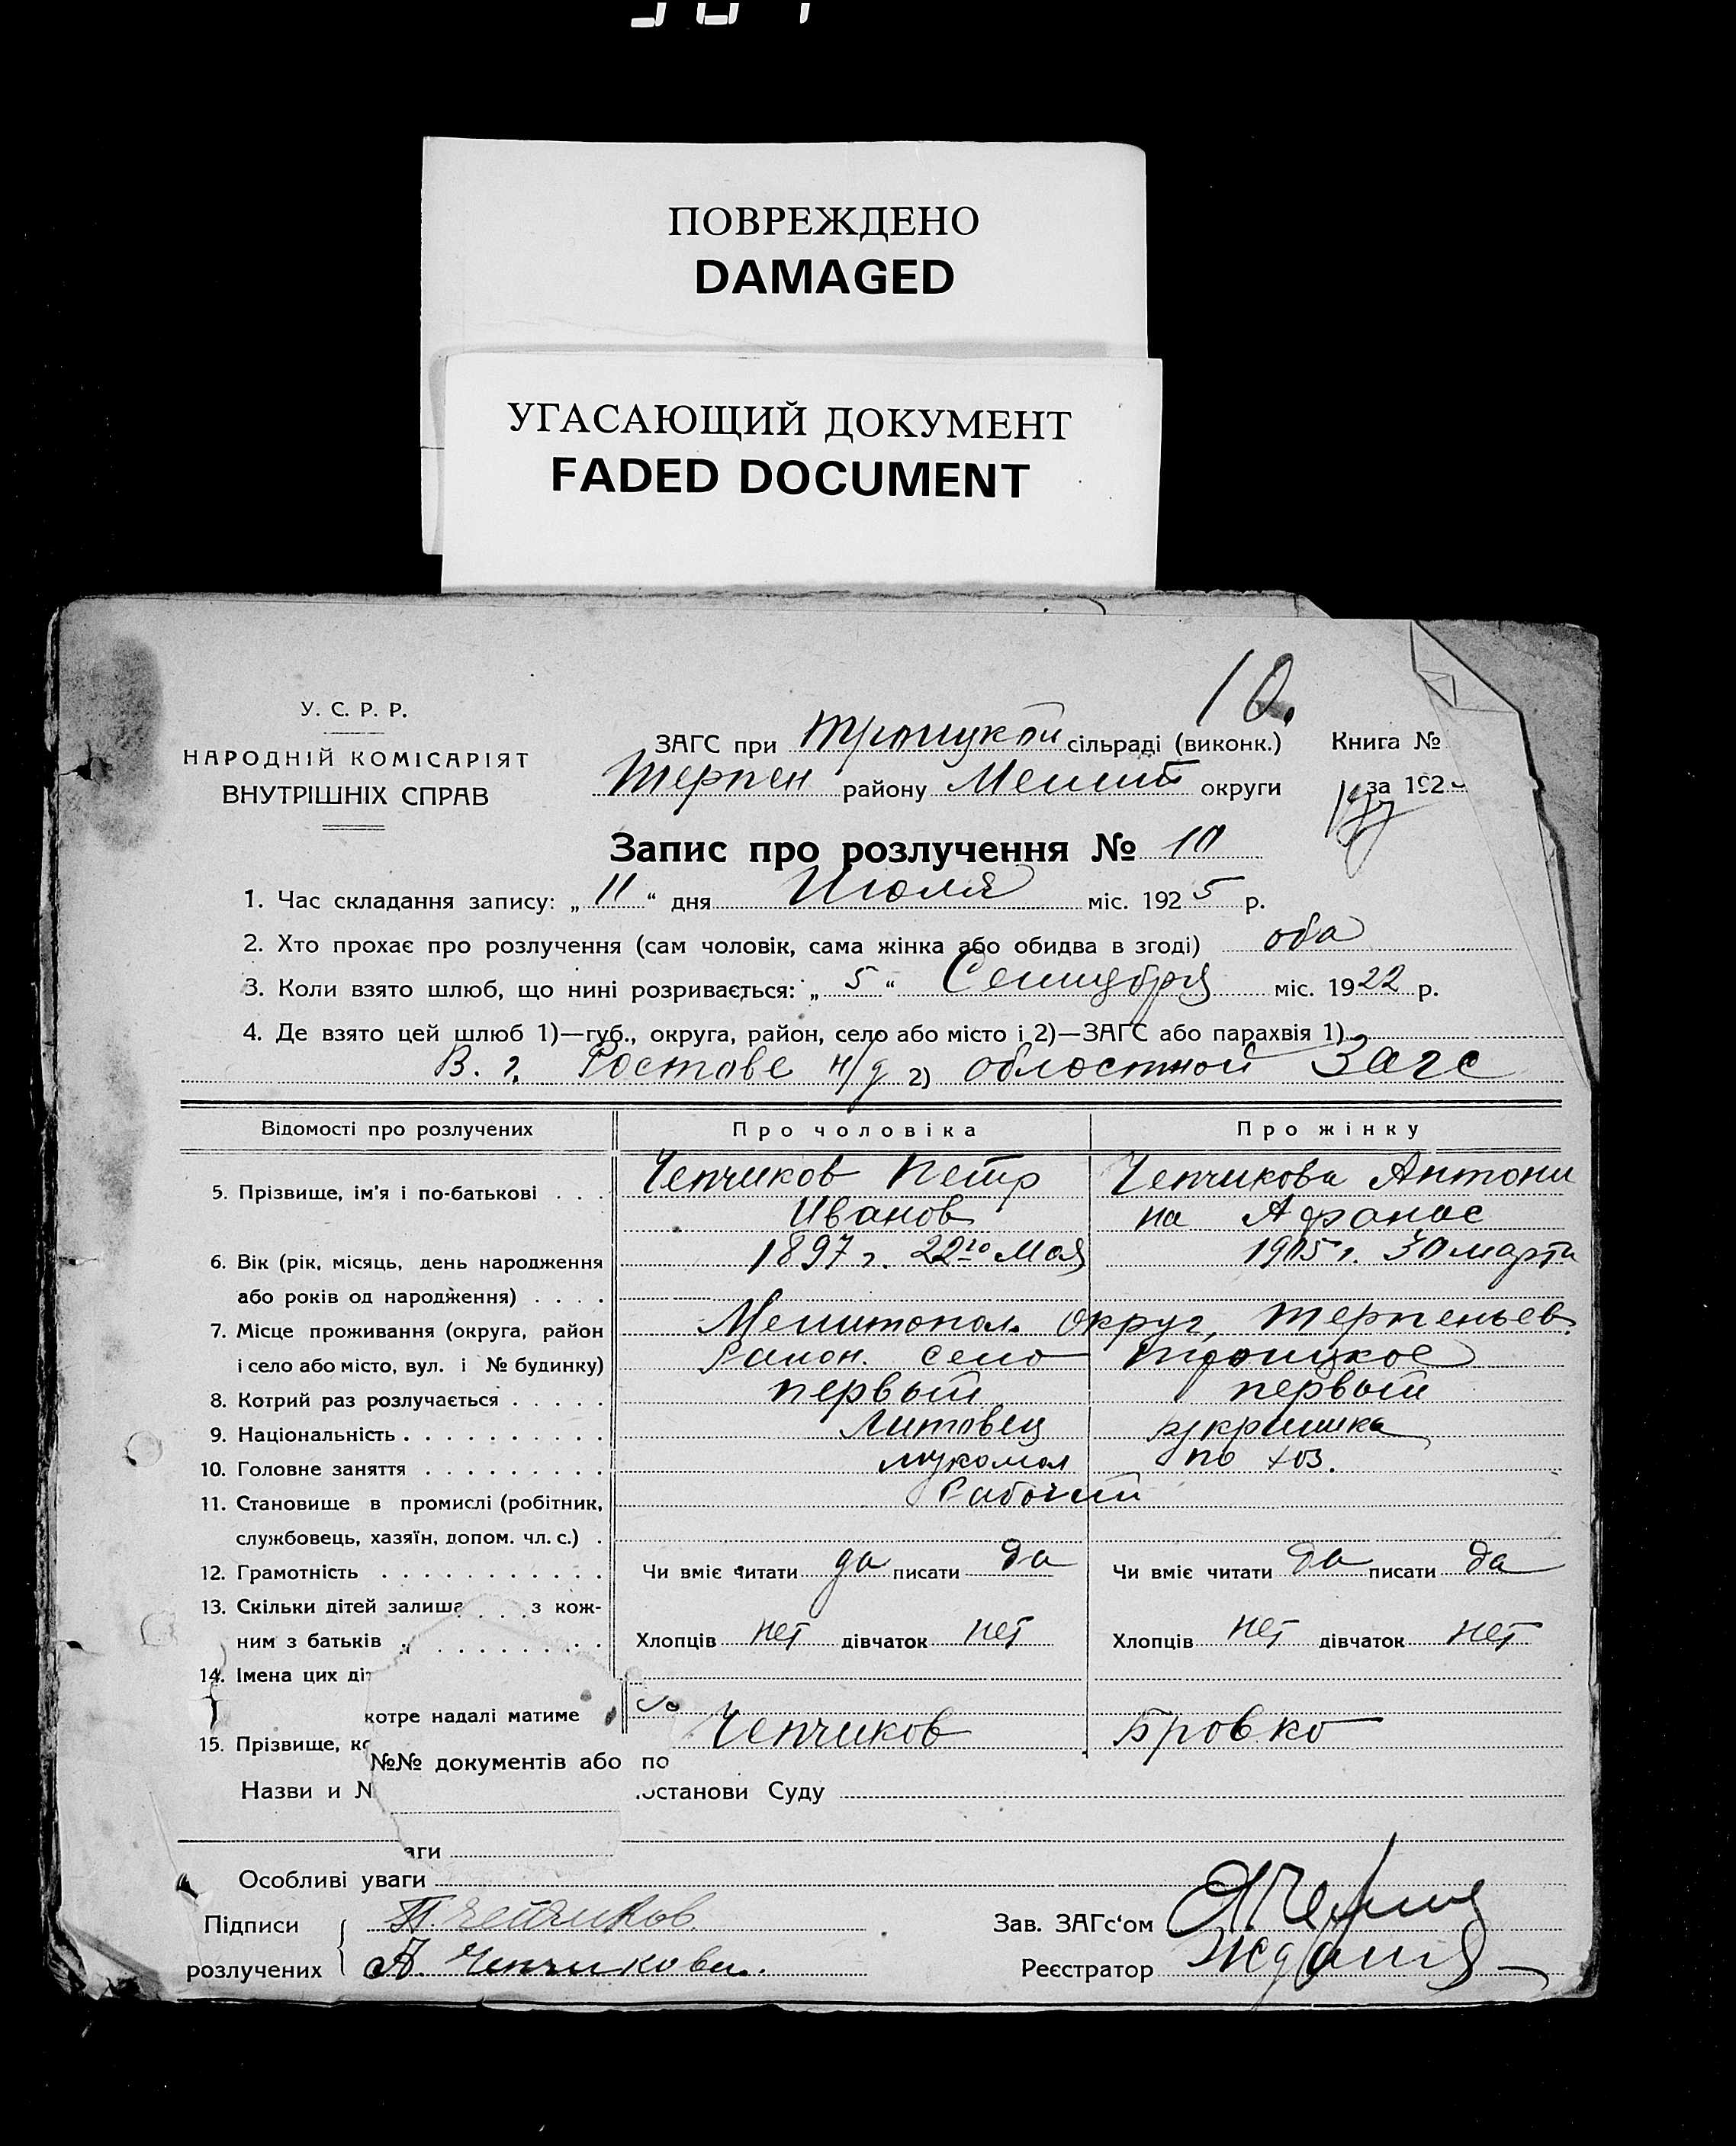 ПОВРЕЖДЕНО
DAMAGED
УГАСАЮЩИЙ ДОКУМЕНТ
FADED DOCUMENT
10.
У. С. Р. Р.
НАРОДНІЙ КОМІСАРІЯТ
ВНУТРІШНІХ СПРАВ
ЗАГС при Троицкой сільраді (виконк.) Книга №
Терпен району Мелит округи за 192
Запис про розлучення № 10
1. Час складання запису: „ 11 “ дня Июля міс. 1925 р.
2. Хто прохає про розлучення (сам чоловік, сама жінка або обидва в згоді) оба
3. Коли взято шлюб, що нині розривається: „ 5 “ Сентября міс. 1922 р.
4. Де взято цей шлюб 1)—губ., округа, район, село або місто і 2)—ЗАГС або парахвія 1)
В. г. Ростове н/д 2) областной Загс
Відомості про розлучених Про чоловіка Про жінку
5. Прізвище, ім'я і по-батькові . . . Чепчиков Петр Чепчикова Антони
Иванов на Афанас
6. Вік (рік, місяць, день народження 1897 г. 22го Мая 1905 г. 30 марта
або років од народження) . . . .
7. Місце проживання (округа, район Мелитопол. Округ, Терпеньев.
і село або місто, вул. і № будинку) Район. село Троицкое
8. Котрий раз розлучається . . . . . первый первый
9. Національність . . . . . . . . . . Литовец украинка
10. Головне заняття . . . . . . . . . мукомол по хоз.
11. Становище в промислі (робітник, Рабочий
службовець, хазяїн, допом. чл. с.) .
12. Грамотність . . . . . . . . . . . Чи вміє читати да писати да Чи вміє читати да писати да
13. Скільки дітей залиша . . . з кож-
ним з батьків . . . . . . . . . . Хлопців нет дівчаток нет Хлопців нет дівчаток нет
14. Імена цих діт
котре надалі матиме
15. Прізвище, ко Чепчиков Бровко
№№ документів або по
Назви и № останови Суду
аги
Особливі уваги
Підписи П. Чепчиков Зав. ЗАГс‘ом
розлучених А. Чепчикова. Реєстратор